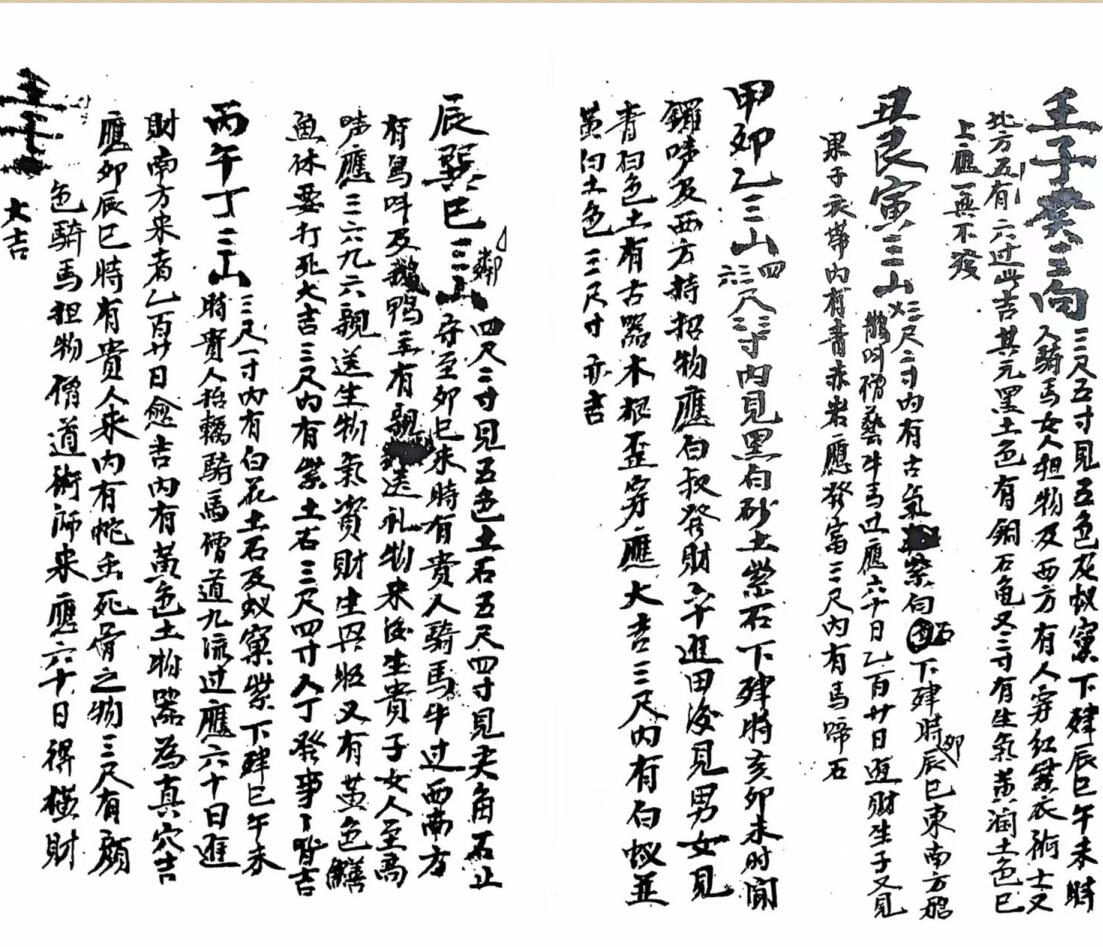 壬子癸三向 三尺五寸見五色及蚁窠下肂辰巳午未時
人騎馬女人担物及西方有人穿紅紫衣術士又
北方五有六过此吉其元黑土色有銅石龟又三寸有生氣黄润土色巳
上應一無不發
丑艮寅三山 三尺二寸内有古氣紫白石下肂時卯辰巳東南方
鵲叫僧藝牛馬过應六十日乙百廿日進財生子又見
果子衣帶内有青赤岩應發富三尺内有馬啼石
甲卯乙三山 四尺三寸内見黑白砂土紫石下肂時亥卯未时闻
鑼啼及西方持招物應白叔發財三年進田後見男女見
青白色土有古器木根歪穿應大吉三尺内有白蚁並
黄白土色三尺寸亦吉
辰巽巳三山 四尺二寸見五色土石五尺四寸見尖角石止
守至卯巳未時有貴人騎馬牛过西南方
有鳥叫及鵝鴨主有親送礼物来後生貴子女人至高
啼應三六九六親送生物氣資財生與旺又有黄色鱔
魚休要打死大吉三尺内有紫土石三尺四寸人丁發事事皆吉
丙午丁三山 三尺一寸内有白花土石及蚁窠紫下肂巳午未
時貴人抬轎騎馬僧道九流过應六十日進
財南方来者乙百廿日愈吉内有黄色土物器為真穴吉
應卯辰巳時有貴人来内有蛇虫死骨之物三尺有顏
色騎馬担物僧道術師来應六十日得橫財
大吉